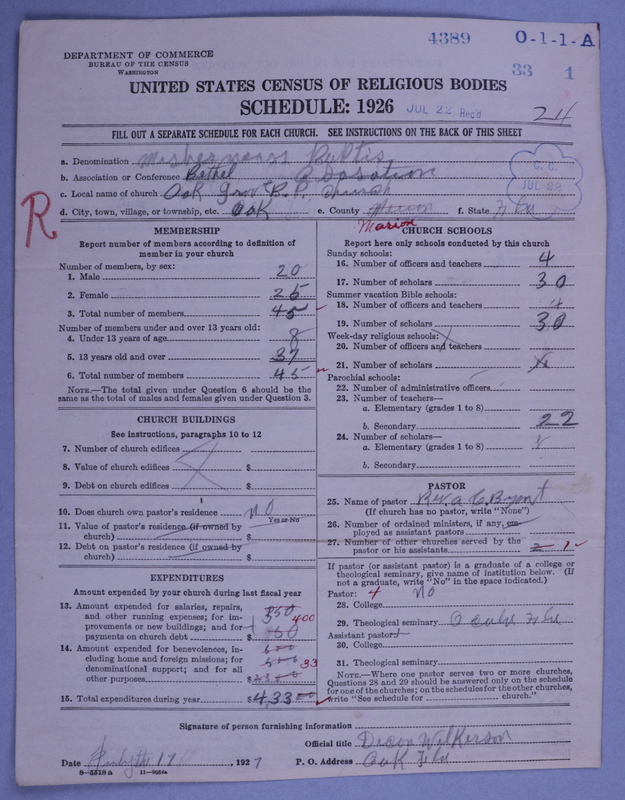 4389 O-1-1-A
DEPARTMENT OF COMMERCE
BUREAU OF THE CENSUS
WASHINGTON
33 1
UNITED STATES CENSUS OF RELIGIOUS BODIES
SCHEDULE: 1926 JUL 22 Rec'd 24
FILL OUT A SEPARATE SCHEDULE FOR EACH CHURCH. SEE INSTRUCTIONS ON THE BACK OF THIS SHEET
a. Denomination
b. Association or Conference Bethel
c. Local name of church Oak Grov B.P. Church
C. C. JUL 22
d. City, town, village, or township, etc. Oak e. County Marion f. State Fla
R
MEMBERSHIP
Report number of members according to definition of
member in your church
Number of members, by sex:
1. Male 20
2. Female 25
3. Total number of members 45
Number of members under and over 13 years old:
4. Under 13 years of age 8
5. 13 years old and over 37
6. Total number of members 45
NOTE.—The total given under Question 6 should be the
same as the total of males and females given under Question 3.
CHURCH BUILDINGS
See instructions, paragraphs 10 to 12
7. Number of church edifices
8. Value of church edifices $
9. Debt on church edifices $
10. Does church own pastor's residence no
Yes or No
11. Value of pastor's residence (if owned by
church) $
12. Debt on pastor's residence (if owned by
church) $
EXPENDITURES
Amount expended by your church during last fiscal year
13. Amount expended for salaries, repairs,
and other running expenses; for im-
provements or new buildings; and for
payments on church debt 350 400 50
14. Amount expended for benevolences, in-
cluding home and foreign missions; for
denominational support; and for all
other purposes $ 33
15. Total expenditures during year $433 00
CHURCH SCHOOLS
Report here only schools conducted by this church
Sunday schools:
16. Number of officers and teachers 4
17. Number of scholars 30
Summer vacation Bible schools:
18. Number of officers and teachers 4
19. Number of scholars 30
Week-day religious schools:
20. Number of officers and teachers
21. Number of scholars
Parochial schools:
22. Number of administrative officers
23. Number of teachers—
a. Elementary (grades 1 to 8)
b. Secondary 22
24. Number of scholars—
a. Elementary (grades 1 to 8)
b. Secondary
PASTOR
25. Name of pastor Rev a C. Bryant
(If church has no pastor, write "None")
26. Number of ordained ministers, if any, em-
ployed as assistant pastors
27. Number of other churches served by the
pastor or his assistants 2 1
If pastor (or assistant pastor) is a graduate of a college or
theological seminary, give name of institution below. (If
not a graduate, write "No" in the space indicated.)
Pastor: 4 no
28. College
29. Theological seminary
Assistant pastor:
30. College
31. Theological seminary
NOTE.—Where one pastor serves two or more churches,
Questions 28 and 29 should be answered only on the schedule
for one of the churches; on the schedules for the other churches,
write "See schedule for church."
Signature of person furnishing information
Official title Decon Walkerson
Date 17, 1927 P. O. Address Oak Fla
8—5518a 11—9064a